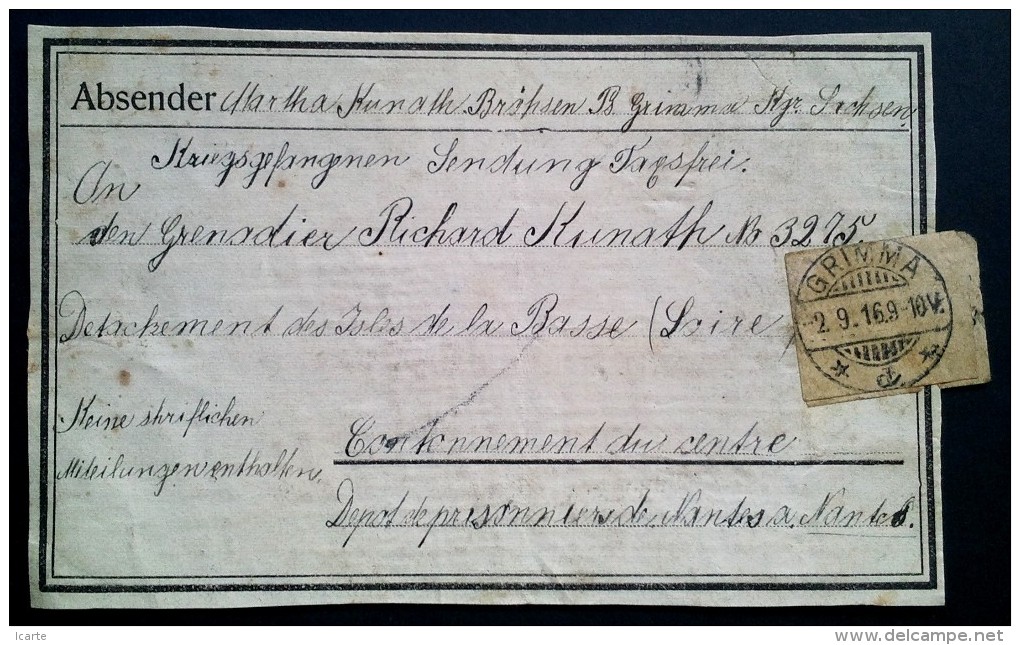 Absender Martha Kunath Bröhsen B. Grimma Kgr. Sachsen.
Kriegsgefangnen Sendung Taxsfrei.
An
den Grenadier Richard Kunath No 3275.
GRIMMA
-2.9.16.9-10V.
Detachement des Isles de la Basse (Loire)
Keine shriflichen
Cantonnement du centre
Miteilungen enthalten.
Depot de prisonniers de Nantes a. Nantes.
Icarte
www.delcampe.net